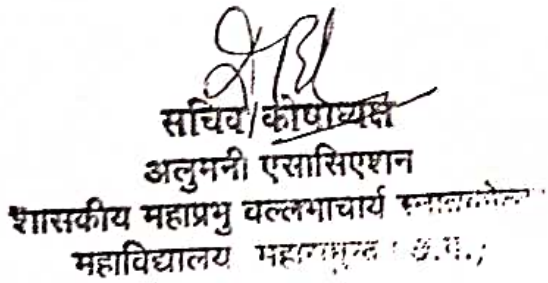 सचिव/कोषाध्यक्ष
अलुमनी एसासिएशन
शासकीय महाप्रभु वल्लभाचार्य स्नातकोत्तर
महाविद्यालय महासमुन्द